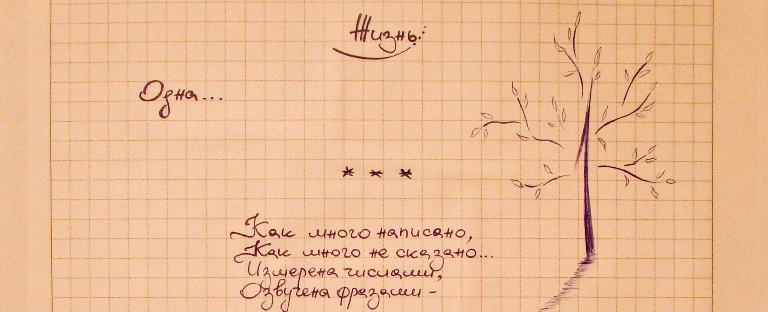 Жизнь...
Одна...
* * *
Как много написано,
Как много не сказано...
Измерена числами,
Озвучена фразами –